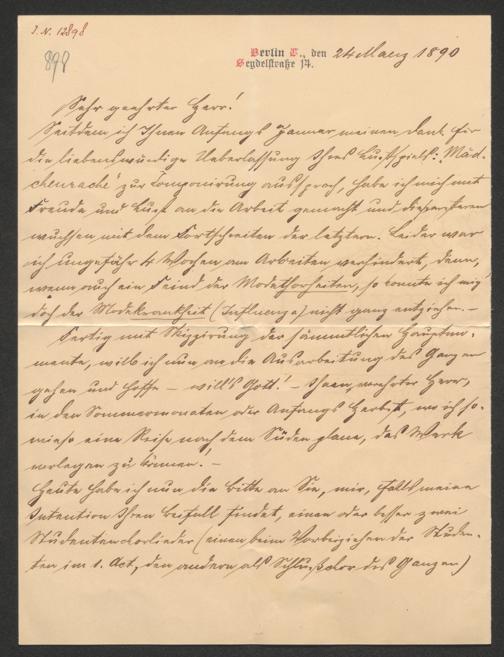 I. N. 12898
898
Berlin C., den 24 Maerz 1890
Seydelstraße 14.
Sehr geehrter Herr!
Seitdem ich Ihnen Anfangs Januar meinen Dank für
die liebenswürdige Ueberlassung Ihres Lustspiels: „Mäd-
chenrache“ zur Componirung aussprach, habe ich mich mit
Freude und Lust an die Arbeit gemacht und die ersteren
wuchsen mit dem Fortschreiten der letztern. Leider war
ich ungefähr 4 Wochen am Arbeiten verhindert, denn,
wenn auch ein Feind der Modethorheiten, so konnte ich mich
doch der Modekrankheit (Influenza) nicht ganz entziehen. –
Fertig mit Skizzirung der sämmtlichen Hauptmo-
mente, will ich nun an die Ausarbeitung des Ganzen
gehen und hoffe – will's Gott! – Ihnen, verehrter Herr,
in den Sommermonaten oder Anfangs Herbst, wo ich so-
wieso eine Reise nach dem Süden plane, das Werk
vorlegen zu können. –
Heute habe ich nun die Bitte an Sie, mir, falls meine
Intention Ihren Beifall findet, einen oder besser zwei
Studentenchorlieder (einen beim Vorbeiziehen der Studen-
ten im 1. Act, den andern als Schlußchor des Ganzen)